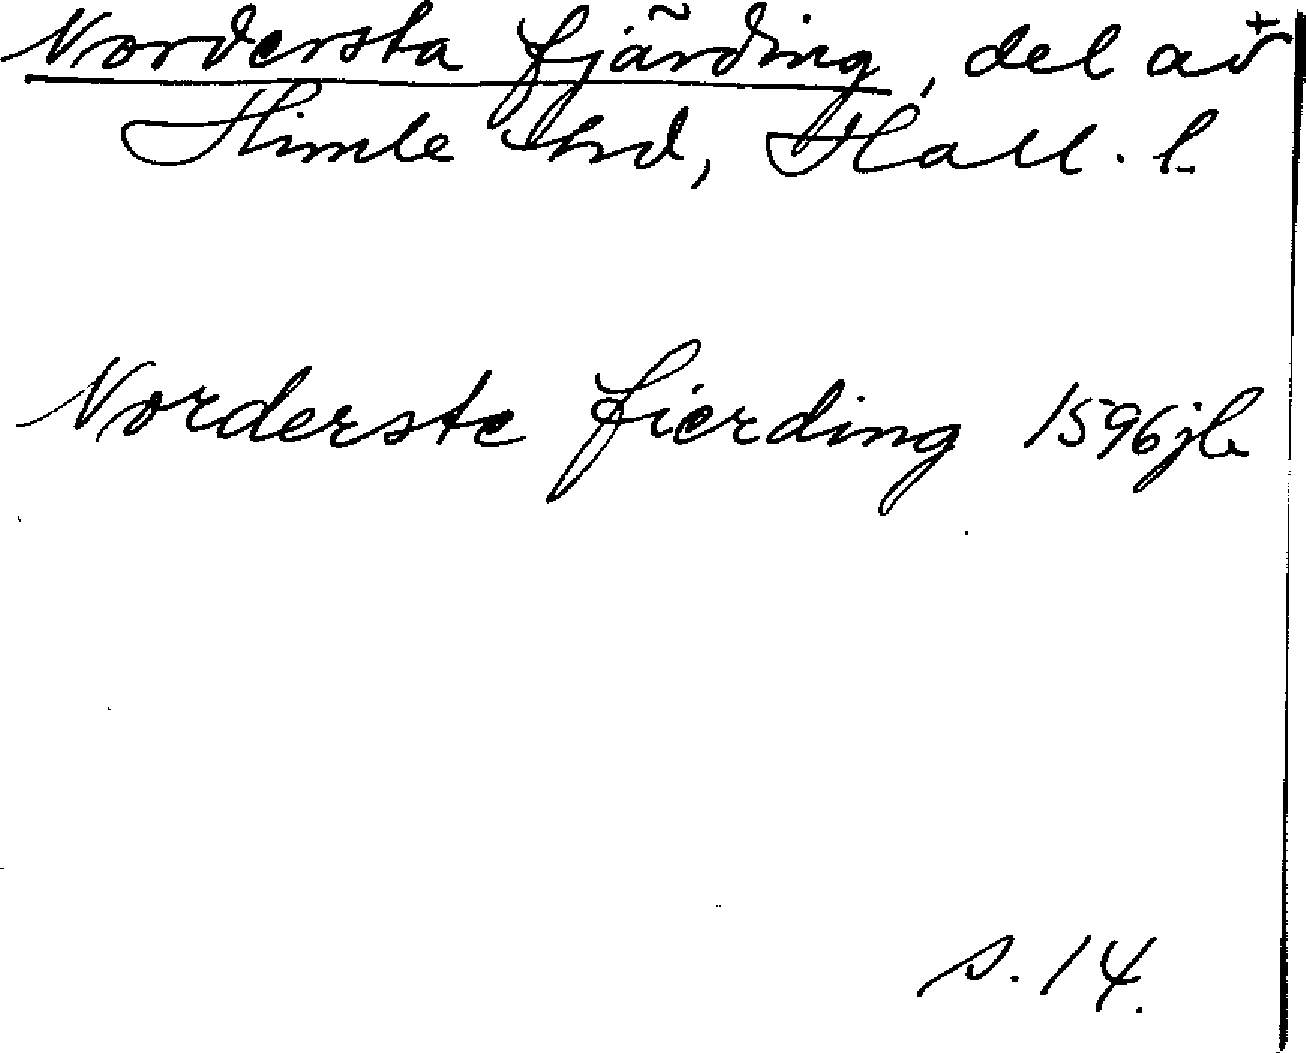 Nordersta fjärding, del av +
Himle hd, Hall. l.
Norderste fierding 1596 jb
s. 14.